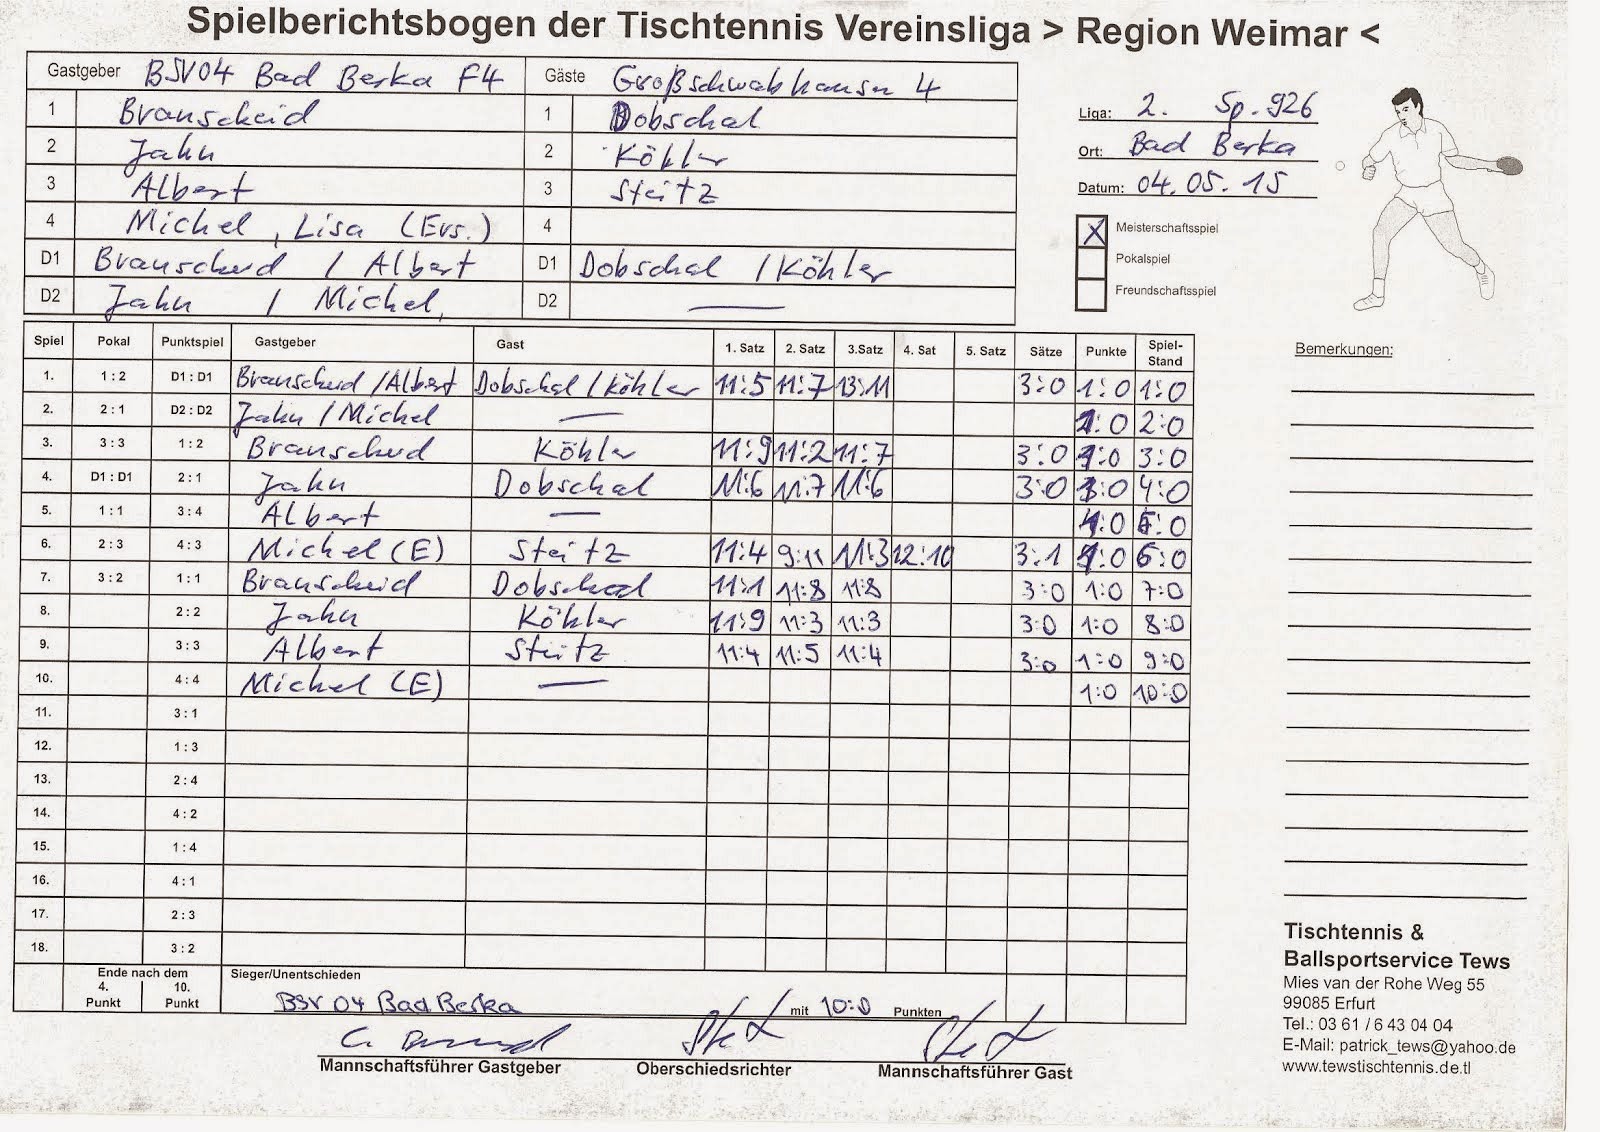 Spielberichtsbogen der Tischtennis Vereinsliga > Region Weimar <
Gastgeber BSV04 Bad Berka F4 Gäste Großschwabhausen 4
1 Branscheid 1 Dobschal
2 Jahn 2 Köhler
3 Albert 3 Steitz
4 Michel, Lisa (Ers.) 4
D1 Branscheid / Albert D1 Dobschal / Köhler
D2 Jahn / Michel D2 —
Liga: 2. Sp. 926
Ort: Bad Berka
Datum: 04.05.15
X Meisterschaftsspiel
Pokalspiel
Freundschaftsspiel
Spiel Pokal Punktspiel Gastgeber Gast 1. Satz 2. Satz 3.Satz 4. Sat 5. Satz Sätze Punkte Spiel-Stand
1. 1 : 2 D1 : D1 Branscheid / Albert Dobschal / Köhler 11:5 11:7 13:11 3:0 1:0 1:0
2. 2 : 1 D2 : D2 Jahn / Michel — 1:0 2:0
3. 3 : 3 1 : 2 Branscheid Köhler 11:9 11:2 11:7 3:0 1:0 3:0
4. D1 : D1 2 : 1 Jahn Dobschal 11:6 11:7 11:6 3:0 1:0 4:0
5. 1 : 1 3 : 4 Albert — 1:0 5:0
6. 2 : 3 4 : 3 Michel (E) Steitz 11:4 9:11 11:3 12:10 3:1 1:0 6:0
7. 3 : 2 1 : 1 Branscheid Dobschal 11:1 11:8 11:8 3:0 1:0 7:0
8. 2 : 2 Jahn Köhler 11:9 11:3 11:3 3:0 1:0 8:0
9. 3 : 3 Albert Steitz 11:4 11:5 11:4 3:0 1:0 9:0
10. 4 : 4 Michel (E) — 1:0 10:0
11. 3 : 1
12. 1 : 3
13. 2 : 4
14. 4 : 2
15. 1 : 4
16. 4 : 1
17. 2 : 3
18. 3 : 2
Ende nach dem
4. Punkt 10. Punkt
Sieger/Unentschieden
BSV 04 Bad Berka mit 10:0 Punkten
Mannschaftsführer Gastgeber Oberschiedsrichter Mannschaftsführer Gast
Bemerkungen:
Tischtennis &
Ballsportservice Tews
Mies van der Rohe Weg 55
99085 Erfurt
Tel.: 03 61 / 6 43 04 04
E-Mail: patrick_tews@yahoo.de
www.tewstischtennis.de.tl